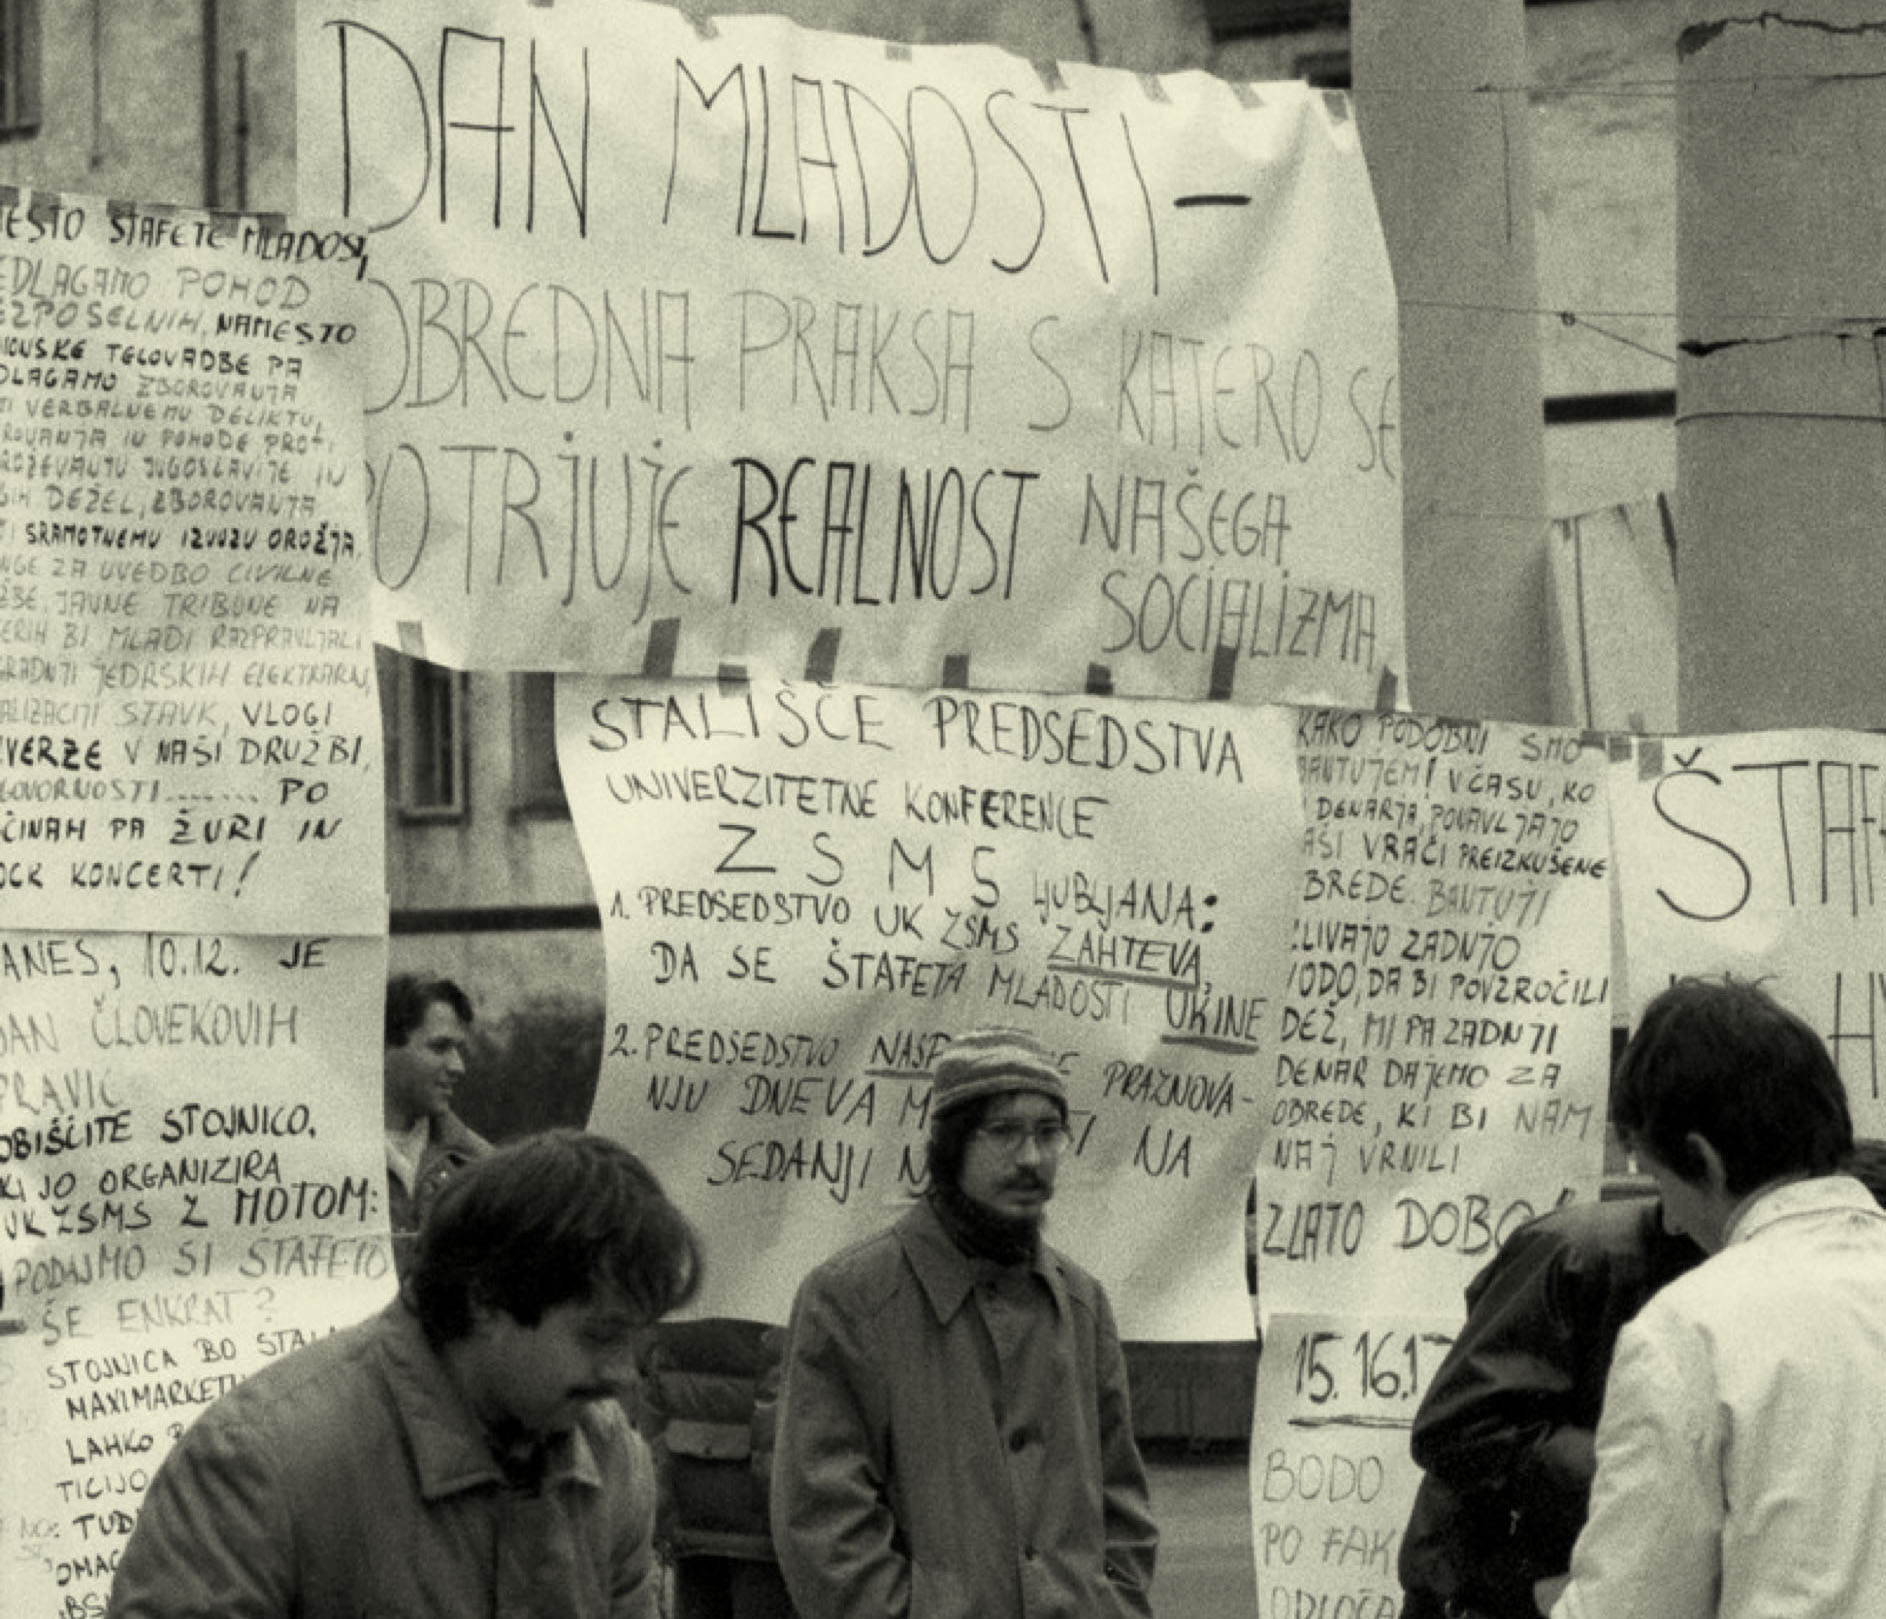 DAN MLADOSTI –
OBREDNA PRAKSA S KATERO SE
POTRJUJE REALNOST NAŠEGA
SOCIALIZMA
ESTO ŠTAFETE MLADOSTI,
EDLAGAMO POHOD
EZPOSELNIH, NAMESTO
TELOVADBE PA
DLAGAMO ZBOROVANJA
TI VERBALNEMU DELIKTU,
ROVANJA IN POHODE PROTI
ROŽEVANJU JUGOSLAVIJE IN
GIH DEŽEL, ZBOROVANJA
TI SRAMOTNEMU IZVOZU OROŽJA,
NGE ZA UVEDBO CIVILNE
ŽBE, JAVNE TRIBUNE NA
TERIH BI MLADI RAZPRAVLJALI
GRADNJI JEDRSKIH ELEKTRARN,
ALIZACIJI STAVK, VLOGI
VERZE V NAŠI DRUŽBI,
GOVORNOSTI........ PO
ČINAH PA ŽURI IN
OCK KONCERTI!
ANES, 10.12. JE
DAN ČLOVEKOVIH
PRAVIC
OBIŠČITE STOJNICO,
KI JO ORGANIZIRA
UK ZSMS Z MOTOM:
PODAJMO SI ŠTAFETO
ŠE ENKRAT?
STOJNICA BO STAL
MAXIMARKETU
LAHKO
TICIJO
TUD
OMAČ
STALIŠČE PREDSEDSTVA
UNIVERZITETNE KONFERENCE
Z S M S LJUBLJANA:
1. PREDSEDSTVO UK ZSMS ZAHTEVA,
DA SE ŠTAFETA MLADOSTI UKINE
2. PREDSEDSTVO NASP E PRAZNOVA-
NJU DNEVA M TI NA
SEDANJI N
KAKO PODOBNI SMO
BANTUJEM! V ČASU, KO
DENARJA, PONAVLJAJO
AŠI VRAČI PREIZKUŠENE
BREDE. BANTUJI
ZLIVAJO ZADNJO
VODO, DA BI POVZROČILI
DEŽ, MI PA ZADNJI
DENAR DAJEMO ZA
OBREDE, KI BI NAM
NAJ VRNILI
ZLATO DOBO!
15. 16. 17
BODO
PO FAK
ODLOČA
ŠTAF